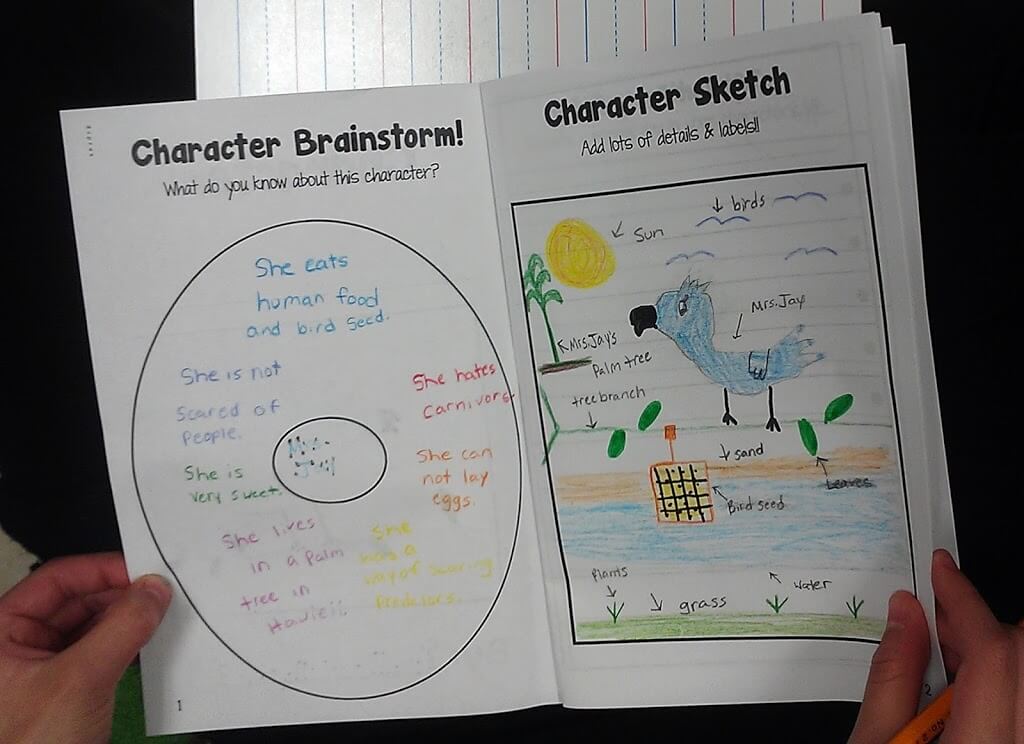 Character Brainstorm!
What do you know about this character?
She eats
human food
and bird seed.
She is not
scared of
people.
She hates
carnivors.
Mrs.
Jay
She is
very sweet.
She can
not lay
eggs.
She lives
in a palm
tree in
She
has a
way of scaring
1
Character Sketch
Add lots of details & labels!!
birds
Sun
Mrs. Jay
Mrs. Jay's
Palm tree
tree branch
sand
Leaves
Bird seed
Plants
water
grass
2